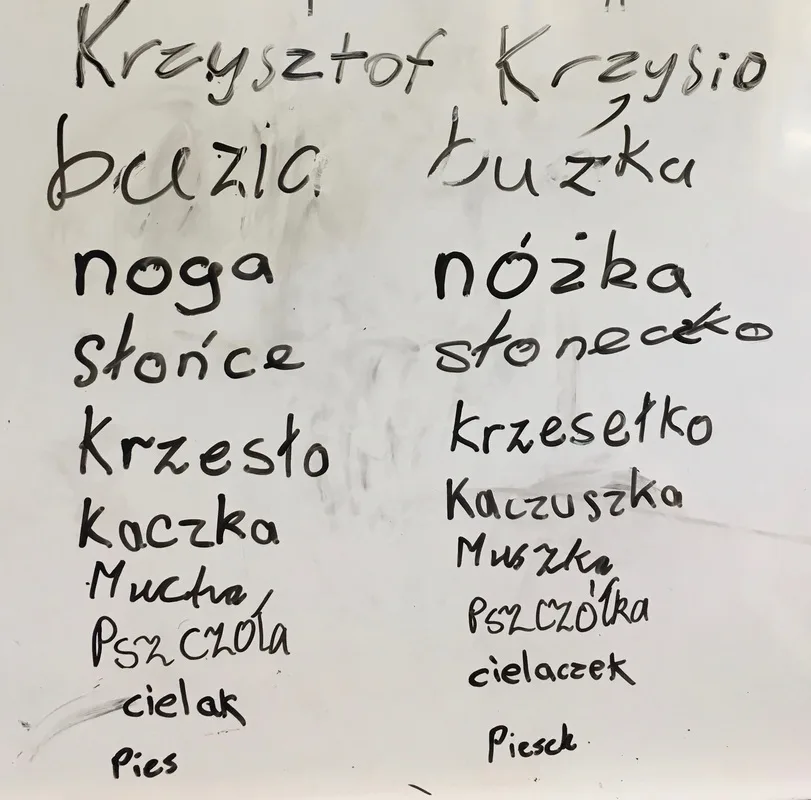 Krzysztof Krzysio
buzia buźka
noga nóżka
słońce słoneczko
Krzesło krzesełko
Kaczka Kaczuszka
Mucha Muszka
Pszczoła Pszczółka
cielak cielaczek
Pies Piesek